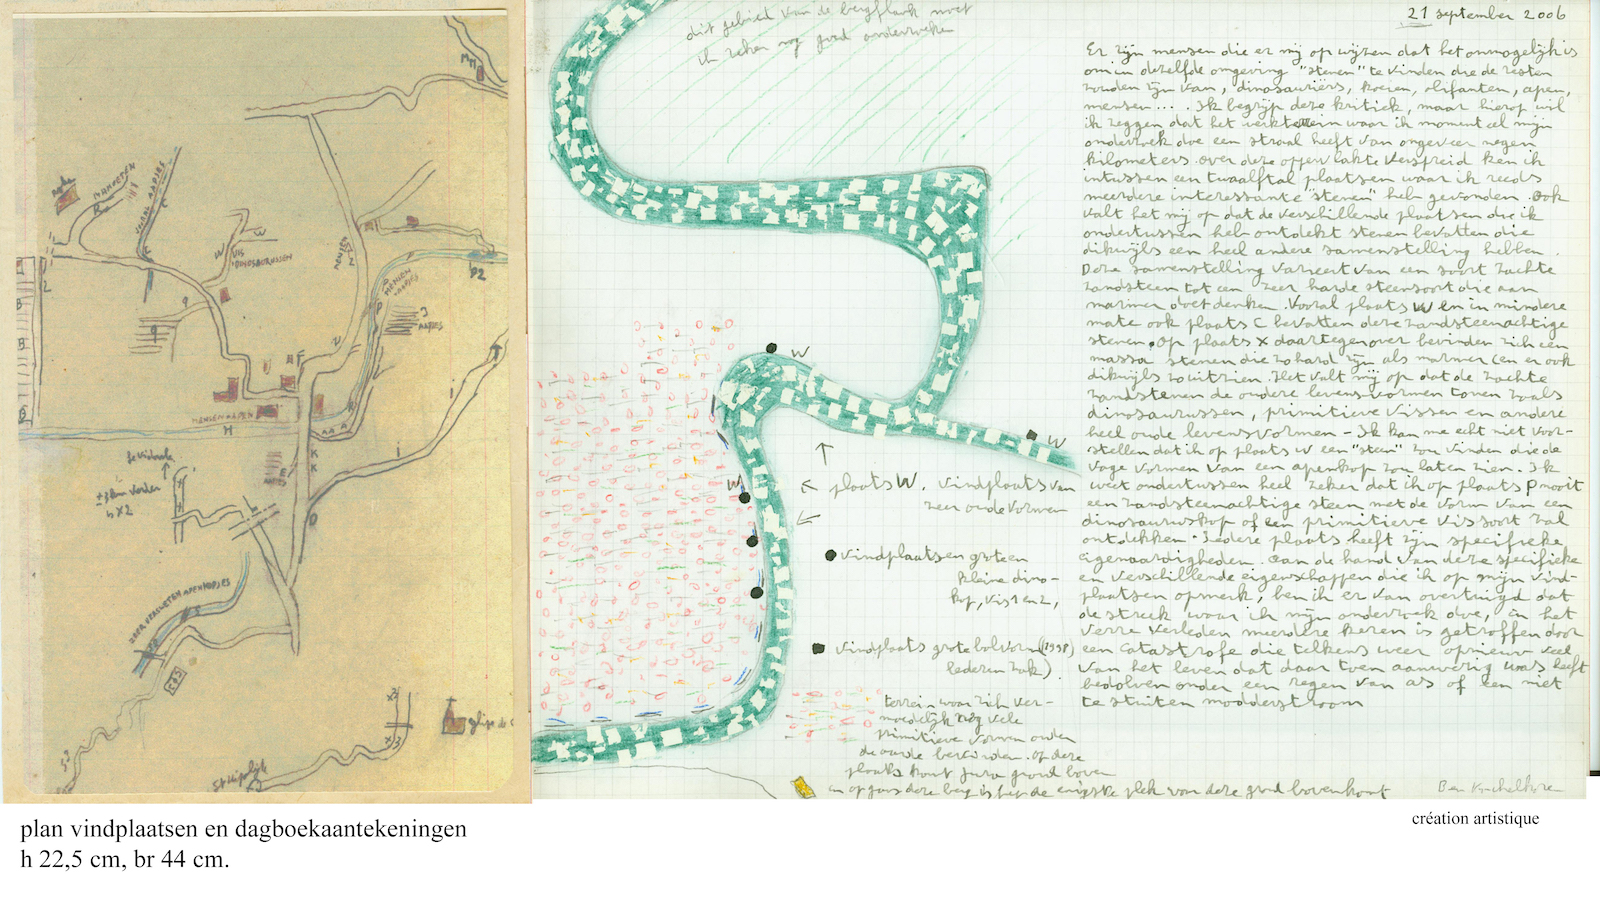 MH
MENSEN
VIS
DINOSAURUSSEN
W
W
MENSEN
AAPJES
P2
J
AAPJES
9
9
U
F
MENSEN APEN
H
AAPJES
K
K
i
i
D
± 3 km verder
is X2
ZEER VERSLETEN APENKOPJES
X3
X3
53
église
dit gebied van de bergflank moet
ik zeker nog goed onderzoeken
W
W
W
plaats W. vindplaats van
zeer oude vormen
vindplaatsen groteen
kleine dino-
kop, vis 1 en 2,
vindplaats grote bolvorm (1998)
lederen zak)
terrein waar zich ver-
moedelijk nog vele
primitieve vormen onder
de aarde bevinden. op deze
plaats komt jura grond boven
en op gans deze berg is de enigste plek van deze grond bovenkomt
21 september 2006
Er zijn mensen die er mij op wijzen dat het onmogelijk is
om in dezelfde omgeving "stenen" te vinden die de resten
zouden zijn van, dinosauriërs, koeien, olifanten, apen,
mensen... . Ik begrijp deze kritiek, maar hierop wil
ik zeggen dat het werkterrein waar ik momenteel mijn
onderzoek doe een straal heeft van ongeveer negen
kilometers. over deze oppervlakte verspreid ken ik
intussen een twaalftal plaatsen waar ik reeds
meerdere interessante "stenen" heb gevonden. Ook
valt het mij op dat de verschillende plaatsen die ik
ondertussen heb ontdekt stenen bevatten die
dikwijls een heel andere samenstelling hebben.
Deze samenstelling varieert van een soort zachte
zandsteen tot een zeer harde steensoort die aan
marmer doet denken. Vooral plaats W en in mindere
mate ook plaats C bevatten deze zandsteenachtige
stenen. op plaats X daartegenover bevinden zich een
massa stenen die zo hard zijn als marmer (en er ook
dikwijls zo uitzien. Het valt mij op dat de zachte
zandstenen de oudere levensvormen tonen zoals
dinosaurussen, primitieve vissen en andere
heel oude levensvormen - Ik kan me echt niet voor-
stellen dat ik op plaats W een "steen" zou vinden die de
vage vormen van een apenkop zou laten zien. Ik
weet ondertussen heel zeker dat ik op plaats P nooit
een zandsteenachtige steen met de vorm van een
dinosauruskop of een primitieve vissoort zal
ontdekken. Iedere plaats heeft zijn specifieke
eigenaardigheden. aan de hand van deze specifieke
en verschillende eigenschappen die ik op mijn vind-
plaatsen opmerk, ben ik er van overtuigd dat
de streek waar ik mijn onderzoek doe, in het
verre verleden meerdere keren is getroffen door
een catastrofe die telkens weer opnieuw veel
van het leven dat daar toen aanwezig was heeft
bedolven onder een regen van as of een niet
te stuiten modderstroom
plan vindplaatsen en dagboekaantekeningen
h 22,5 cm, br 44 cm.
création artistique